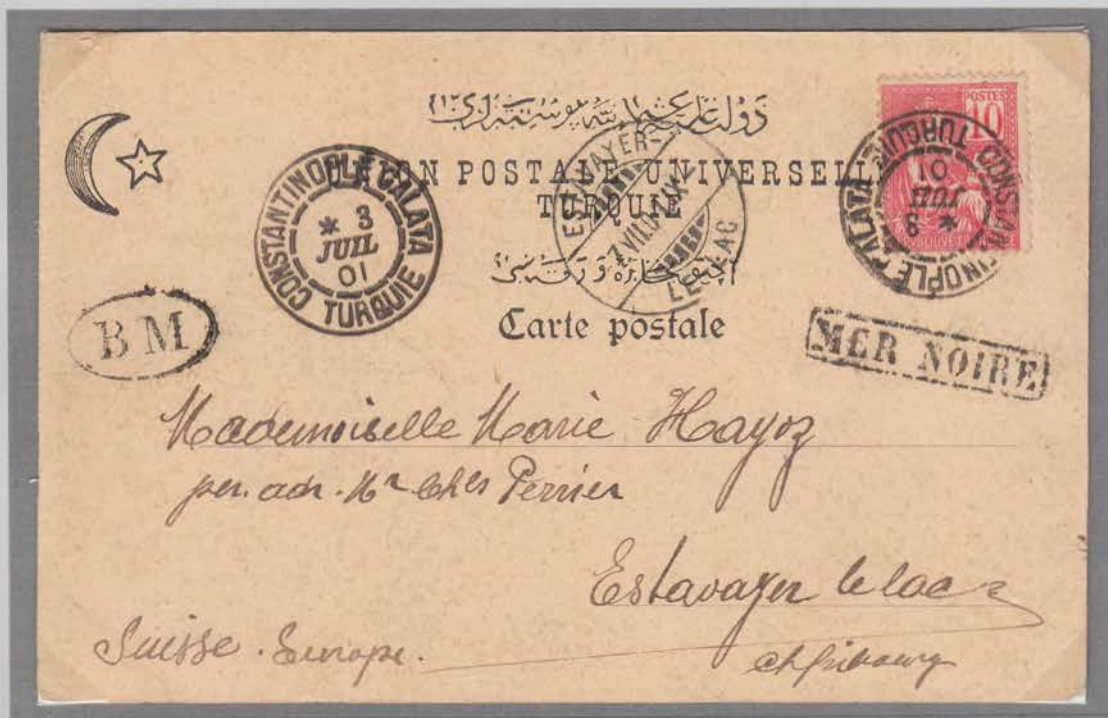 دولت علیهٔ عثمانیه پوسته‌لری
UNION POSTALE UNIVERSELLE
TURQUIE
Carte postale
CONSTANTINOPLE GALATA
* 3
JUIL
01
TURQUIE
ESTAVAYER-
7.VII.01.
LE-LAC
POSTES
10
CONSTANTINOPLE GALATA
* 3
JUIL
01
TURQUIE
B M
MER NOIRE
Mademoiselle Marie Hayoz
per. adr. Mr Chles Perrier
Estavayer le lac
Suisse. Europe.
ct fribourg